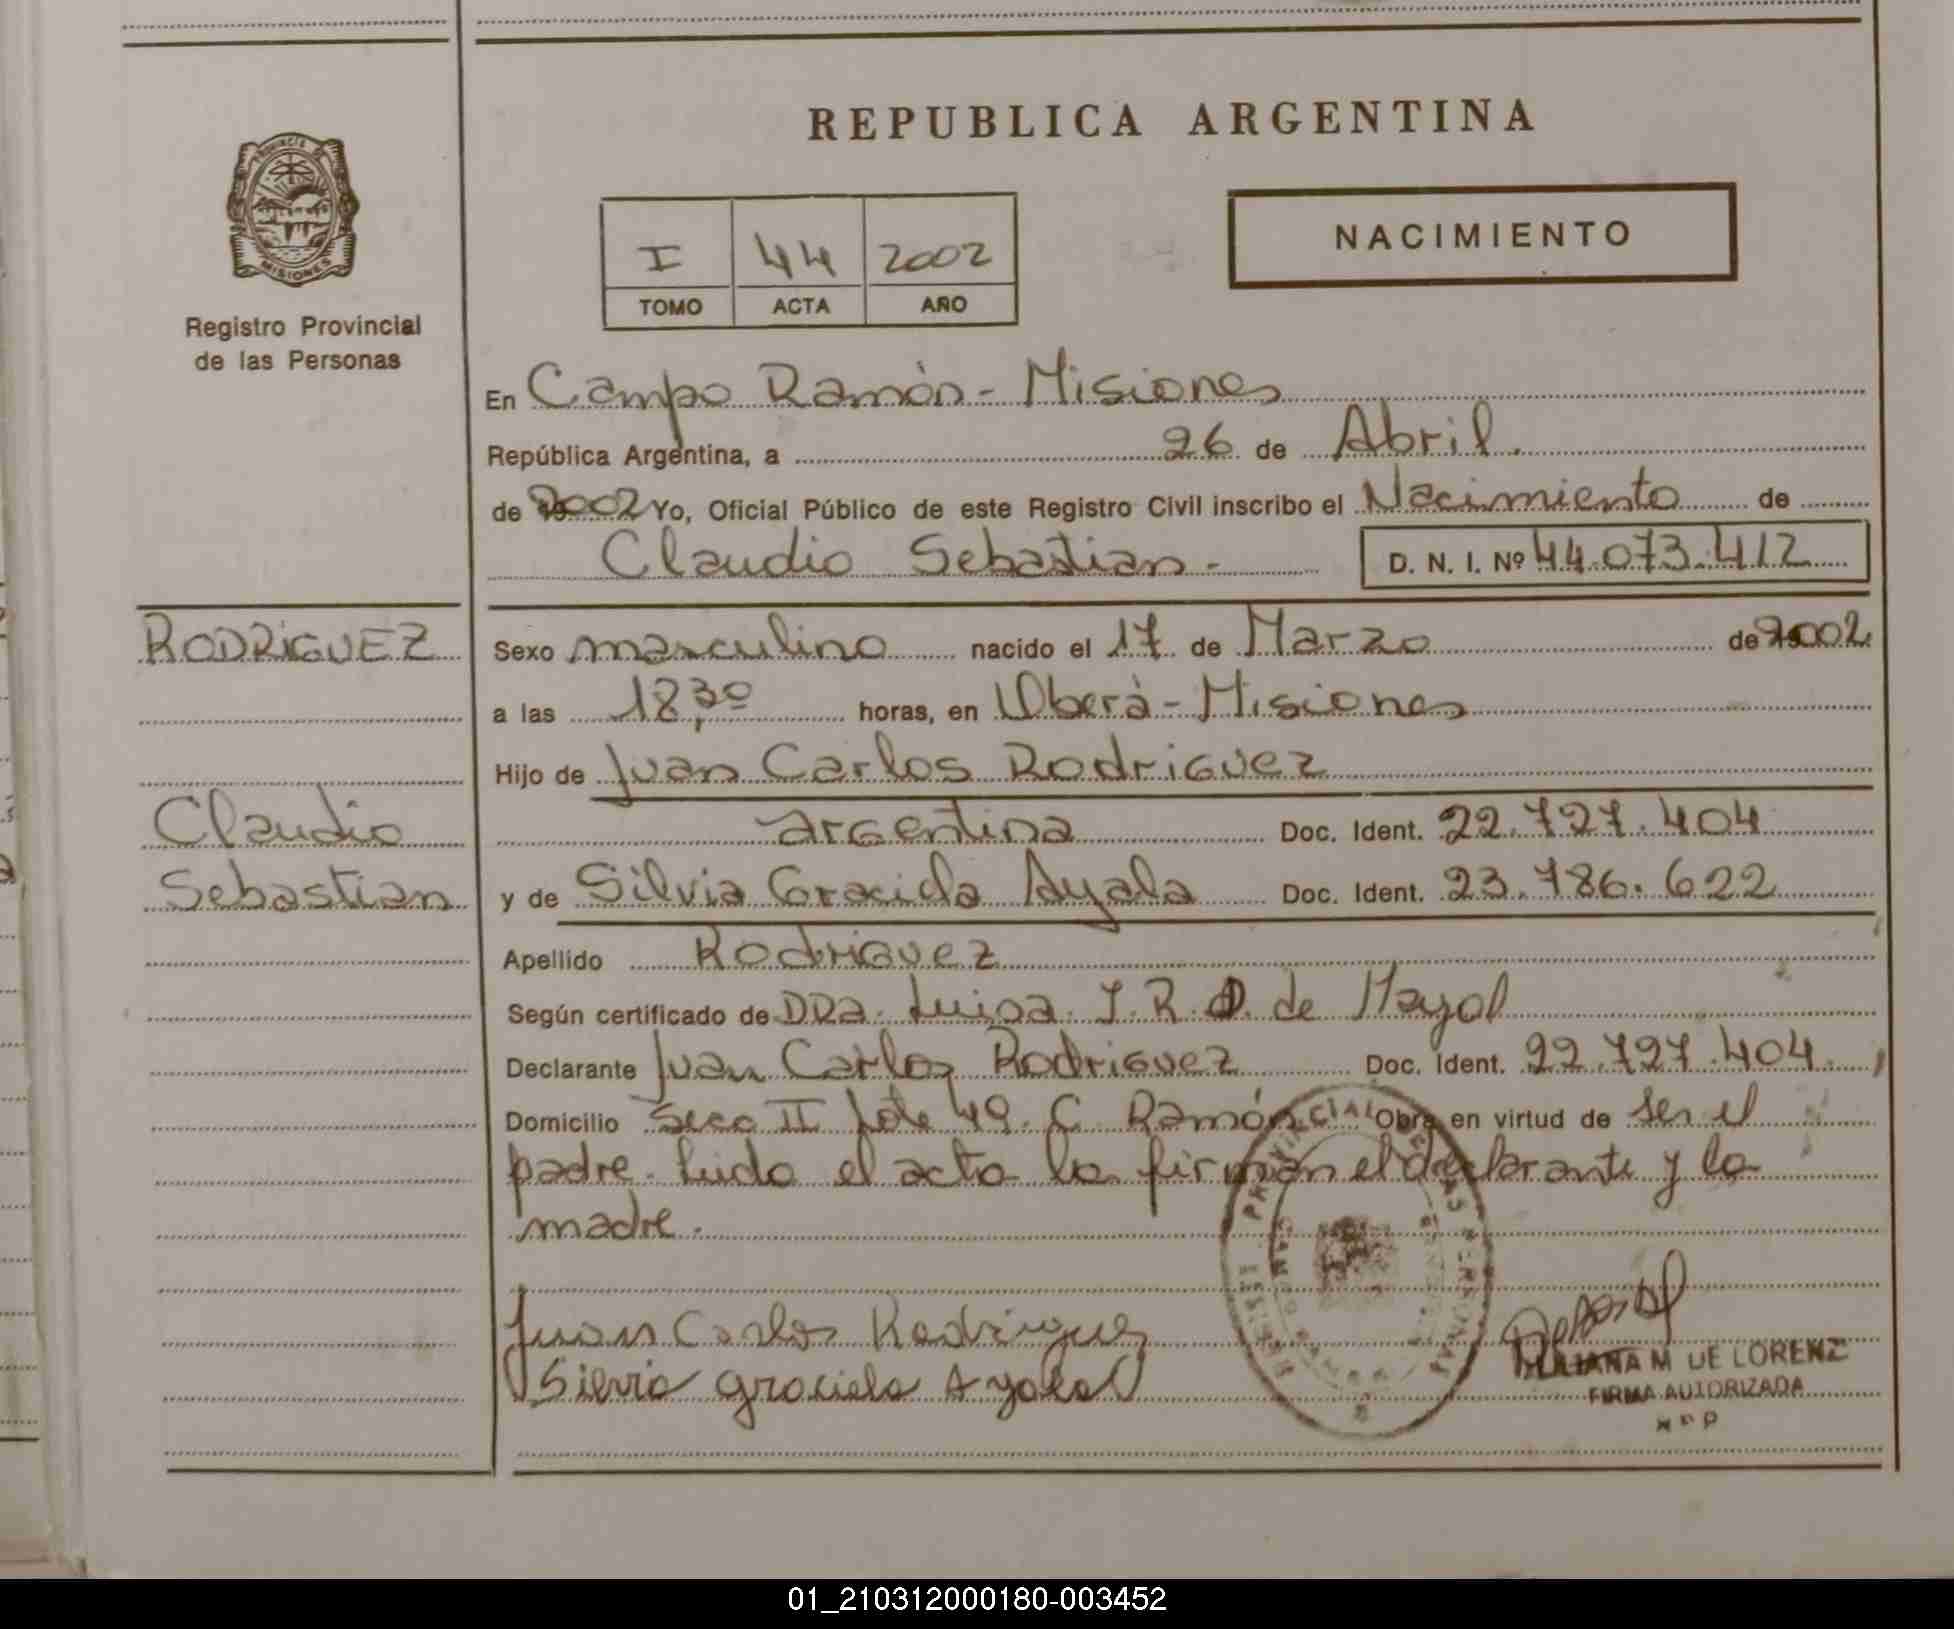 REPUBLICA ARGENTINA
PROVINCIA DE
MISIONES
Registro Provincial
de las Personas
I 44 2002
TOMO ACTA AÑO
NACIMIENTO
En Campo Ramón - Misiones
República Argentina, a 26 de Abril.
de 2002 Yo, Oficial Público de este Registro Civil inscribo el Nacimiento de
Claudio Sebastian - D. N. I. Nº 44.073.412
RODRIGUEZ
Claudio
Sebastian
Sexo masculino nacido el 17 de Marzo de 2002
a las 18,30 horas, en Oberá - Misiones
Hijo de Juan Carlos Rodriguez
argentina Doc. Ident. 22.727.404
y de Silvia Graciela Ayala Doc. Ident. 23.786.622
Apellido Rodriguez
Según certificado de DRa. Luisa de Mayol
Declarante Juan Carlos Rodriguez Doc. Ident. 22.727.404.
Domicilio Secc II Lote 49. C. Ramón Obra en virtud de ser el
padre. Leida el acta la firman el declarante y la
madre.
Juan Carlos Rodriguez
Silvia Graciela Ayala
DE LORENZ
FIRMA AUTORIZADA
01_210312000180-003452